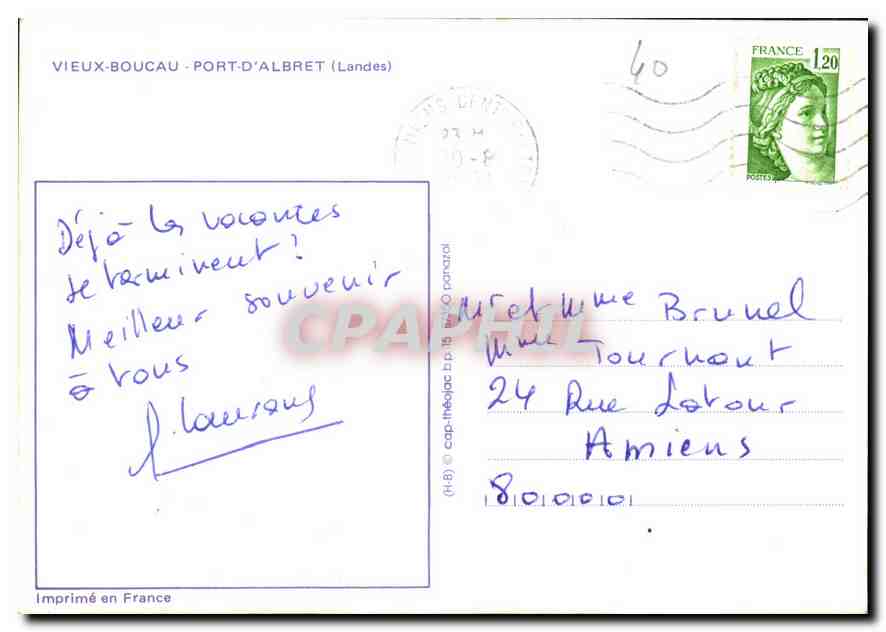 VIEUX-BOUCAU - PORT-D'ALBRET (Landes)
40
FRANCE
1,20
POSTES
Déjà les vacances
se terminent !
Meilleur souvenir
à tous
Mr et Mme Brunel
Mme Tournant
24 Rue Latour
Amiens
80000
(H-B) © cap-théojac b.p. 15 panazol
CPAPHIL
Imprimé en France